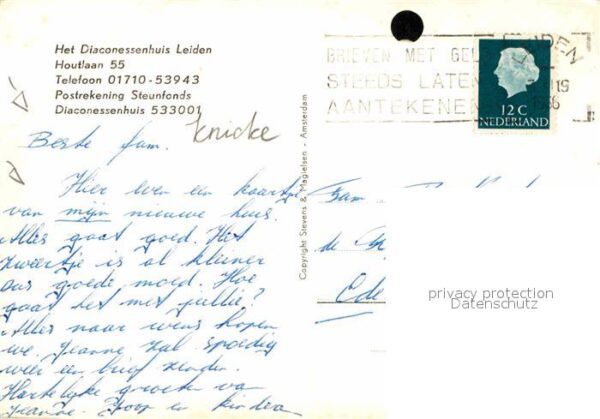 Het Diaconessenhuis Leiden
Houtlaan 55
Telefoon 01710-53943
Postrekening Steunfonds
Diaconessenhuis 533001
knicke
Beste fam.
Hier even een kaartje
van mijn nieuwe huis.
Alles gaat goed. Het
zweertje is al kleiner
dus goede moed. Hoe
gaat het met jullie?
Alles naar wens hopen
we. Jeanne zal spoedig
weer een brief zenden.
Hartelijke groeten van
Jeanne. Joop en kinderen
Copyright Stevens & Magielsen - Amsterdam
BRIEVEN MET GEL
STEEDS LATE
AANTEKENEN
12 C
NEDERLAND
Fam
de
Ede
privacy protection
Datenschutz